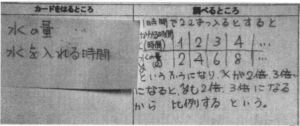 カードをはるところ
水の量 …
水を入れる時間
調べるところ
1時間で2Lずつ入るとすると
(時間) 1 2 3 4 …
水の量 2 4 6 8 …
というふうになり、Xが2倍、3倍
になると、yも2倍、3倍になる
から 比例する という。